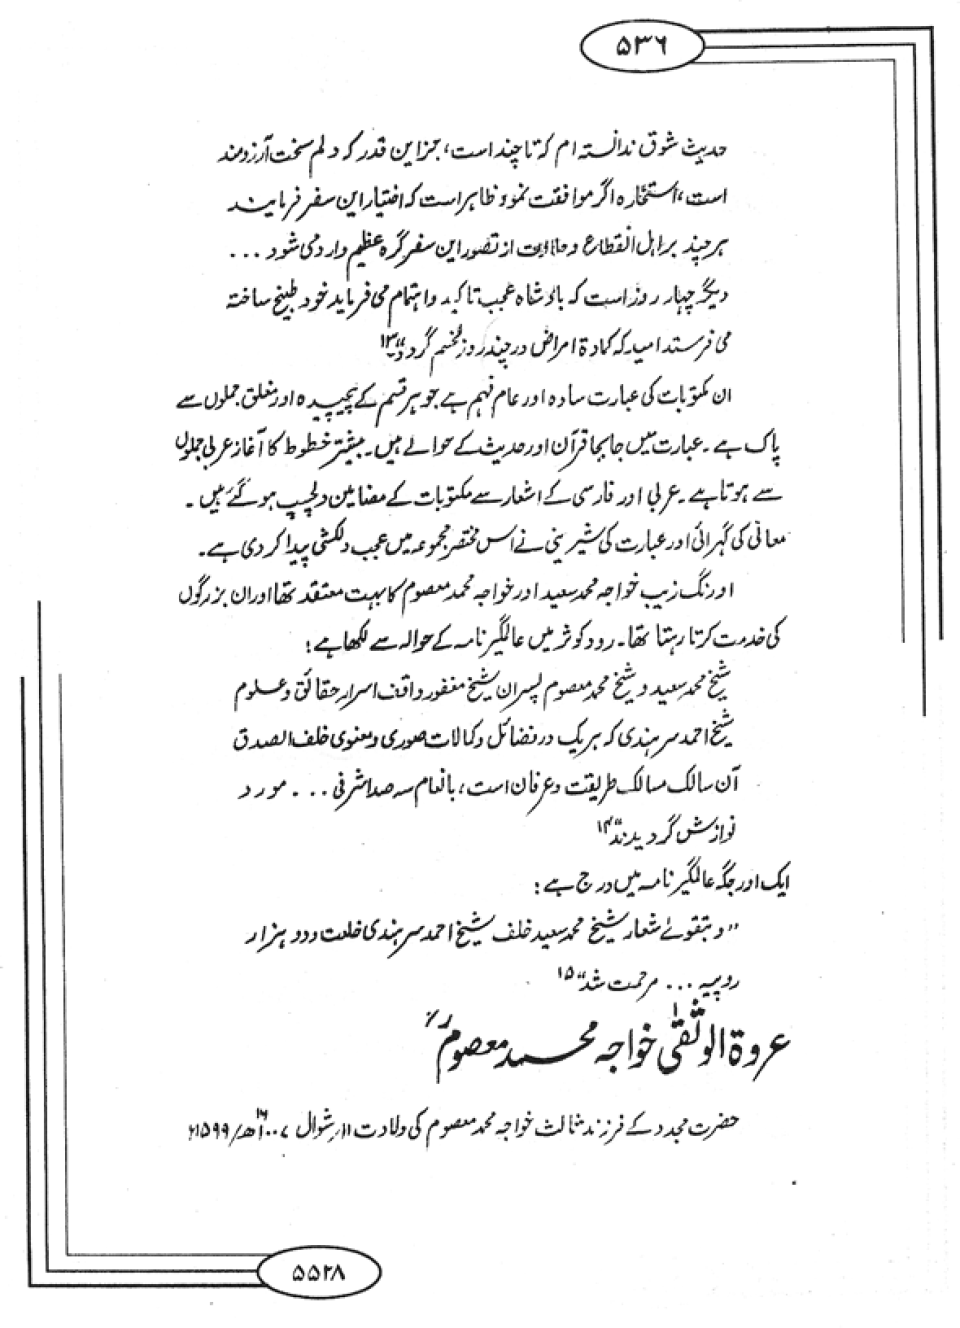 ۵۳۶
حدیث شوق ندانستہ ام کہ تا چند است، جز این قدر کہ دلم سخت آرزومند
است، استخارہ اگر موافقت نمود ظاہر است کہ اختیار این سفر فرمایند
ہر چند بر اہل انقطاع و از تصور این سفر گرہ عظیم وارد می شود ...
دیگر چہار روز است کہ بادشاہ عجب تاکید و اہتمام می فرماید خود طبیخ ساختہ
می فرستد امید کہ مادۂ امراض در چند روز ختم گردد“۱۳
ان مکتوبات کی عبارت سادہ اور عام فہم ہے جو ہر قسم کے پیچیدہ اور مغلق جملوں سے
پاک ہے۔ عبارت میں جابجا قرآن اور حدیث کے حوالے ہیں۔ بیشتر خطوط کا آغاز عربی جملوں
سے ہوتا ہے۔ عربی اور فارسی کے اشعار سے مکتوبات کے مضامین دلچسپ ہو گئے ہیں۔
معانی کی گہرائی اور عبارت کی شیرینی نے اس مختصر مجموعہ میں عجب دلکشی پیدا کر دی ہے۔
اورنگ زیب خواجہ محمد سعید اور خواجہ محمد معصوم کا بہت معتقد تھا اور ان بزرگوں
کی خدمت کرتا رہتا تھا۔ رود کوثر میں عالمگیر نامہ کے حوالہ سے لکھا ہے:
شیخ محمد سعید و شیخ محمد معصوم پسران شیخ مغفور واقف اسرار حقائق و علوم
شیخ احمد سرہندی کہ ہریک در فضائل و کمالات صوری و معنوی خلف الصدق
آن سالک مسالک طریقت و عرفان است، بانعام سہ صد اشرفی ... مورد
نوازش گردیدند“۱۴
ایک اور جگہ عالمگیر نامہ میں درج ہے:
”و بتقوےٰ شعار شیخ محمد سعید خلف شیخ احمد سرہندی خلعت و دو ہزار
روپیہ ... مرحمت شد“۱۵
عروۃ الوثقیٰ خواجہ محمد معصومؒ
حضرت مجدد کے فرزند ثالث خواجہ محمد معصوم کی ولادت ۱۱؍شوال ۱۰۰۷ھ۱۶/۱۵۹۹ء
۵۵۲۸